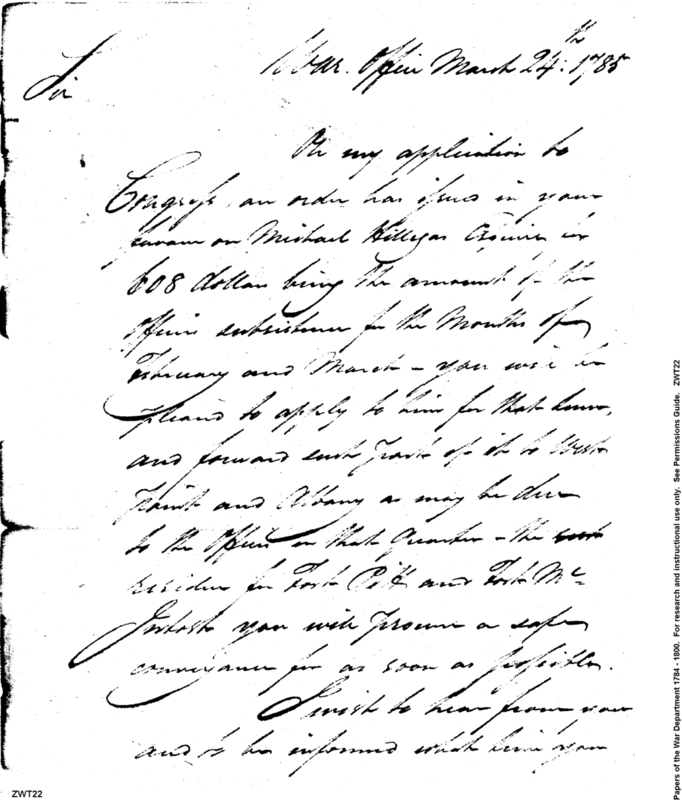 War Office March 24th. 1785
Sir
On my application to
Congress, an order has issued in your
favour on Michael Hillegas Esquire for
608 dollars being the amount of the
Officers subsistence for the Months of
February and March - you will be
pleased to apply to him for that sum,
and forward such part of it to West
Point and Albany as may be due
to the Officers in that Quarter - the
residue for Fort Pitt and Fort Mc
Intosh you will procure a safe
conveyance for as soon as possible.
I wish to hear from you
and to be informed what time you
ZWT22
Papers of the War Department 1784 - 1800. For research and instructional use only. See Permissions Guide. ZWT22